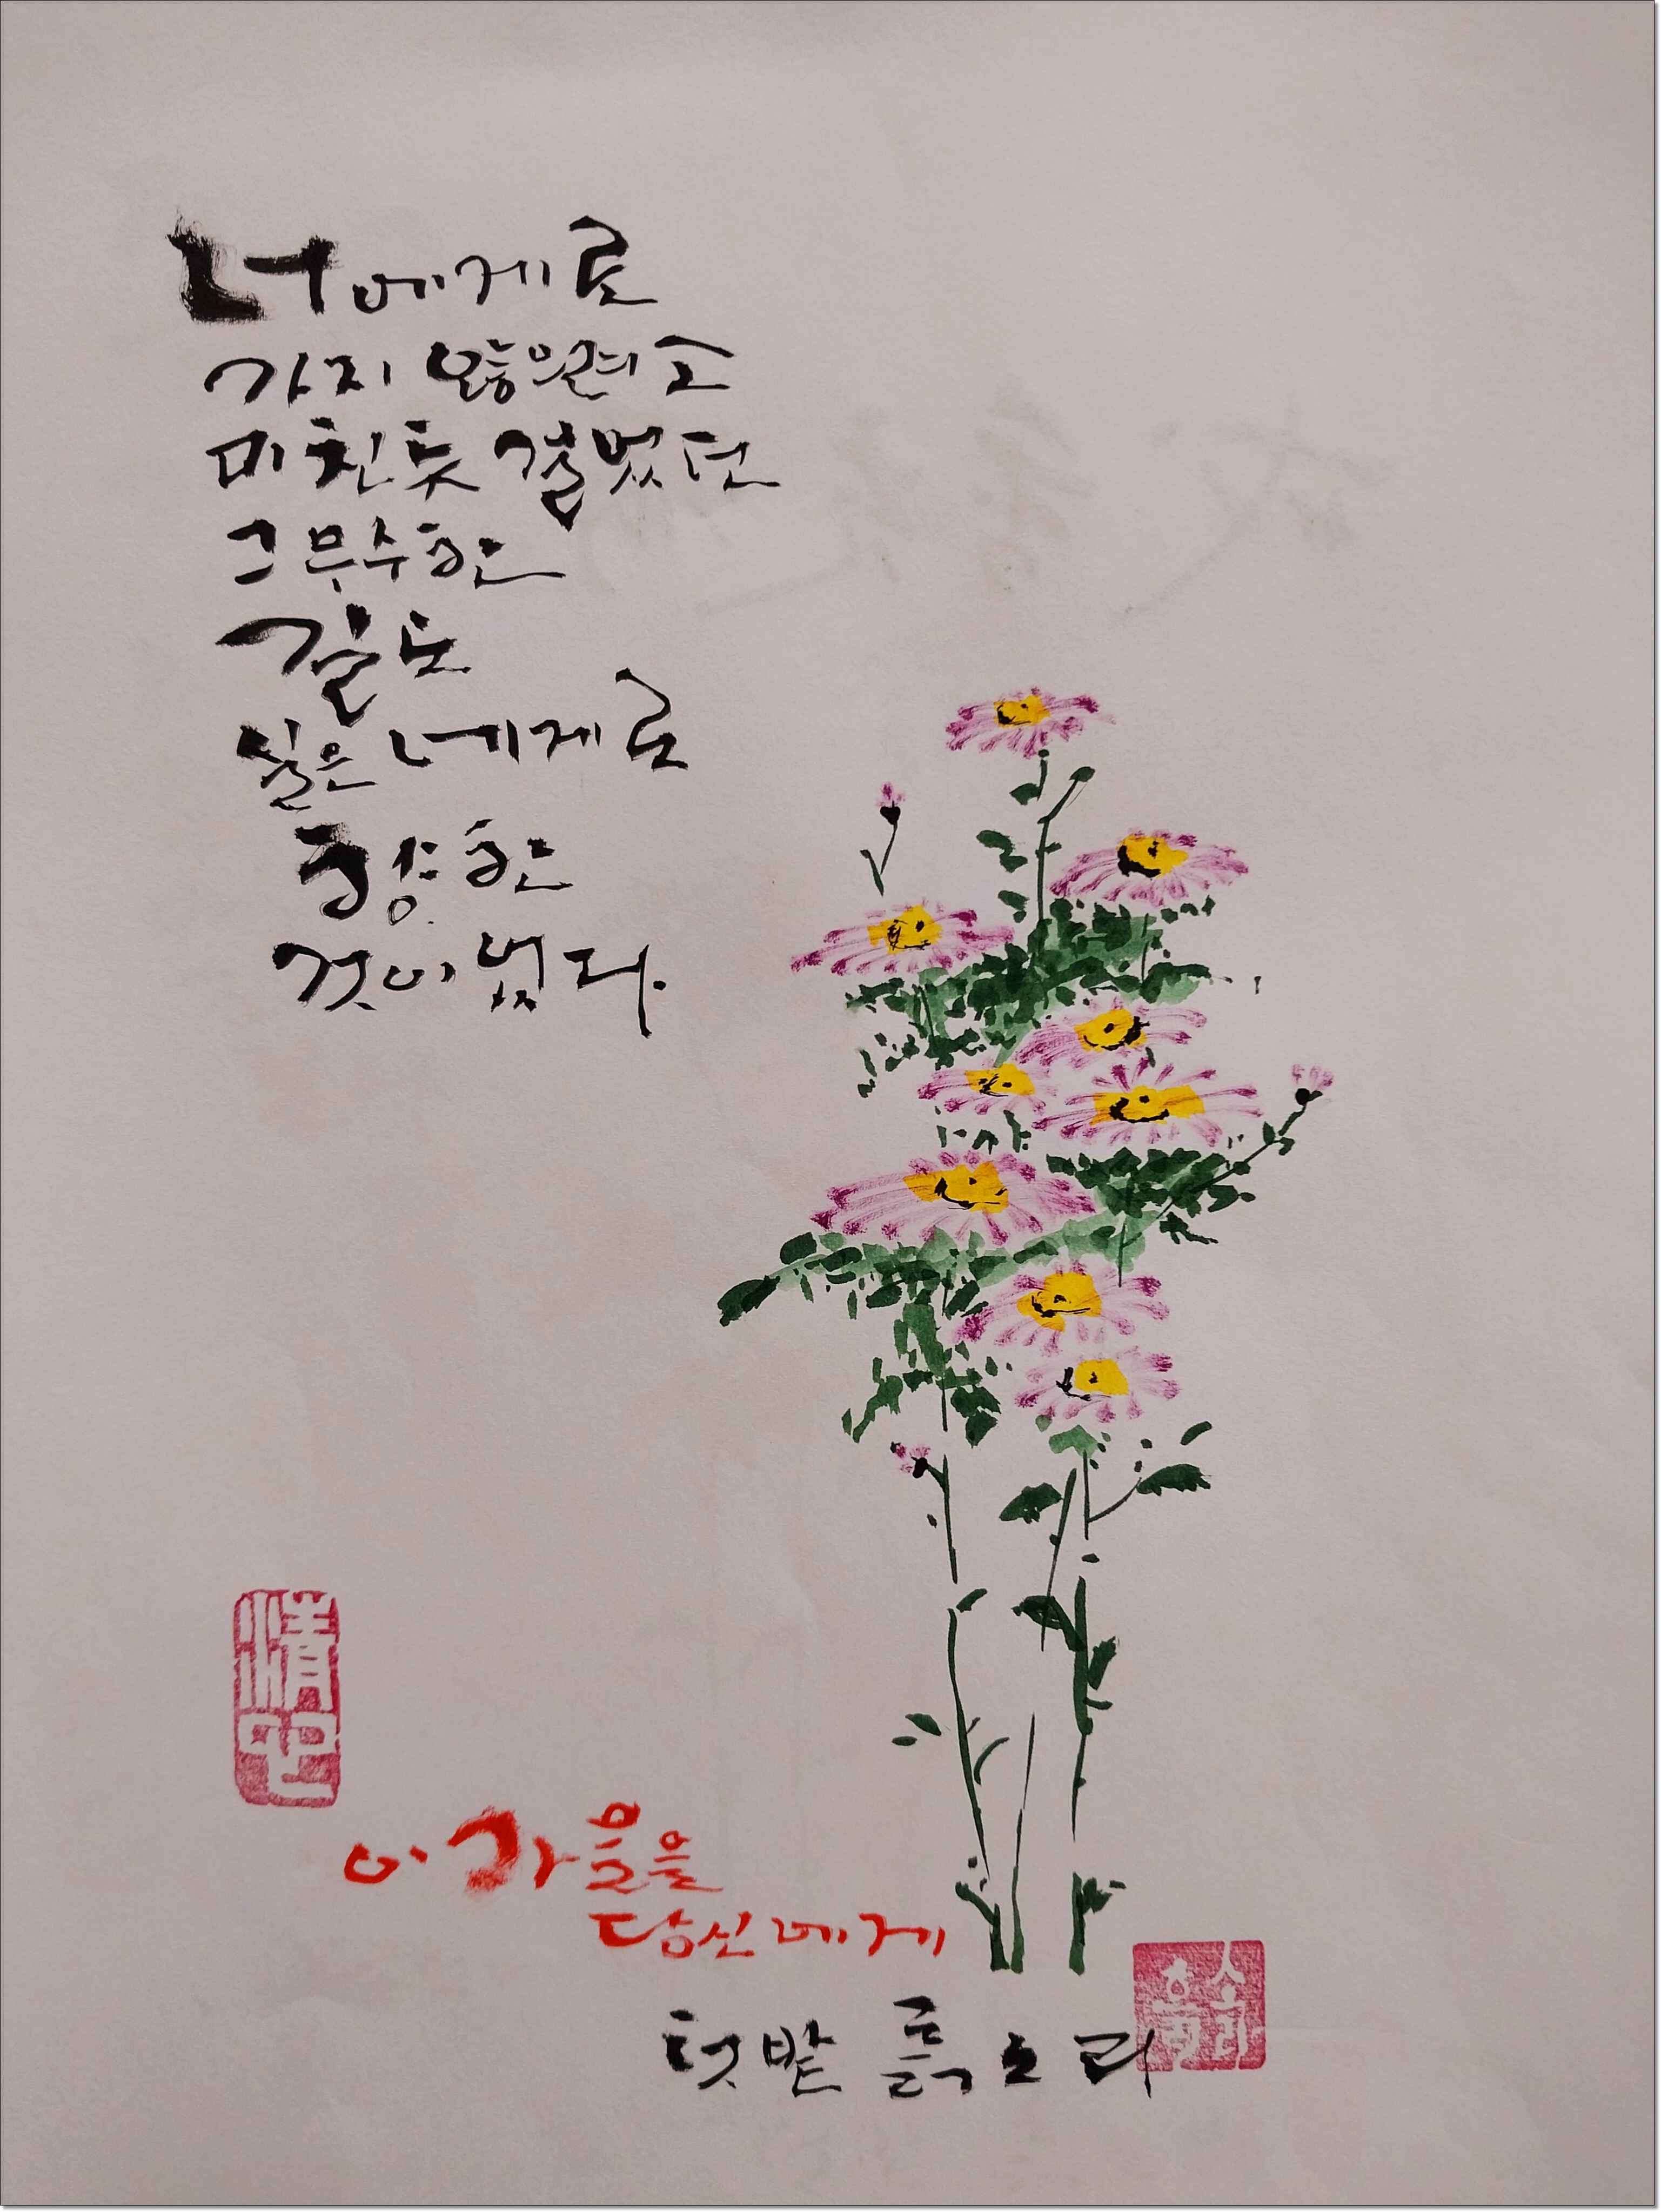 너에게로
가지 않으려고
미친듯 걸었던
그 무수한
길도
실은 네게로
향한
것이었다.
清
이 가을을
당신에게
텃밭 흙소리
흙소리